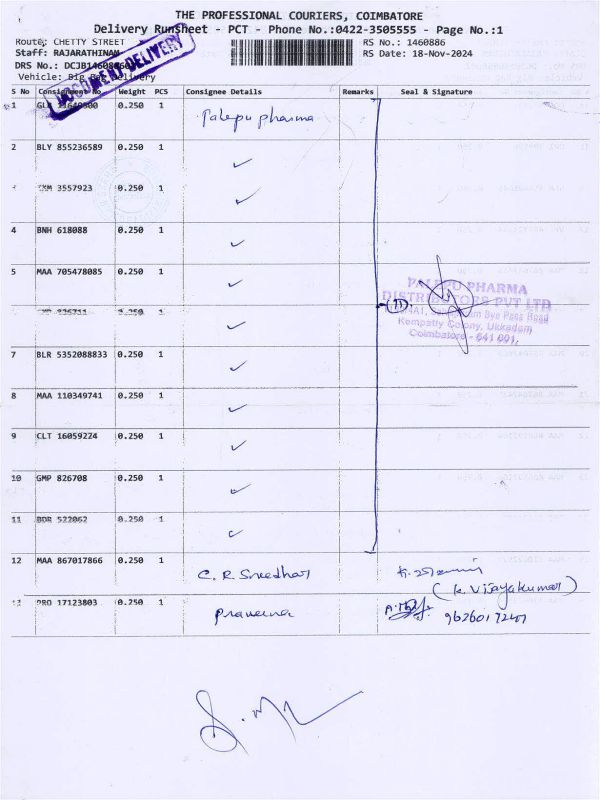 THE PROFESSIONAL COURIERS, COIMBATORE
Delivery RunSheet - PCT - Phone No.:0422-3505555 - Page No.:1
Route: CHETTY STREET
RS No.: 1460886
Staff: RAJARATHINAM
RS Date: 18-Nov-2024
DRS No.: DCJB1460886
Vehicle: Big Bag Delivery
DOCUMENT DELIVERY
S No Consignment No Weight PCS Consignee Details Remarks Seal & Signature
1 0.250 1 Palepu pharma
2 BLY 855236589 0.250 1 ✓
3557923 0.250 1 ✓
4 BNH 618088 0.250 1 ✓
5 MAA 705478085 0.250 1 ✓
PALEPU PHARMA
DISTRIBUTORS PVT LTD
(11)
Bye Pass Road
Kempatty Colony, Ukkadam,
Coimbatore - 641 001.
0.250 1 ✓
7 BLR 5352088833 0.250 1 ✓
8 MAA 110349741 0.250 1 ✓
9 CLT 16059224 0.250 1 ✓
10 GMP 826708 0.250 1 ✓
11 BDR 522062 0.250 1 ✓
12 MAA 867017866 0.250 1 C. R. Sreedhar
(K. Vijayakumar)
PRO 17123803 0.250 1 Praveena